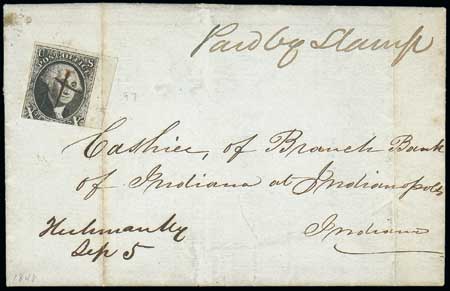 Paid by Stamp
POST OFFICE
97
Cashier, of Branch Bank
of Indiana at Indianopolis
Indiana
Hickman Ky
Sep 5
1848